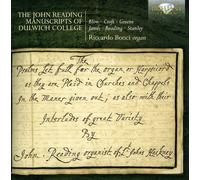 THE JOHN READING
MANUSCRIPTS OF
DULWICH COLLEGE
Blow · Croft · Greene
James · Reading · Stanley
Riccardo Bonci organ
The
Psalms Set full for the organ or Harpsicord
as they are Plaid in Churches and Chappels
In the maner given out; as also with their
Interludes of great Variety
By
John Reading organist of St. Johns Hackney